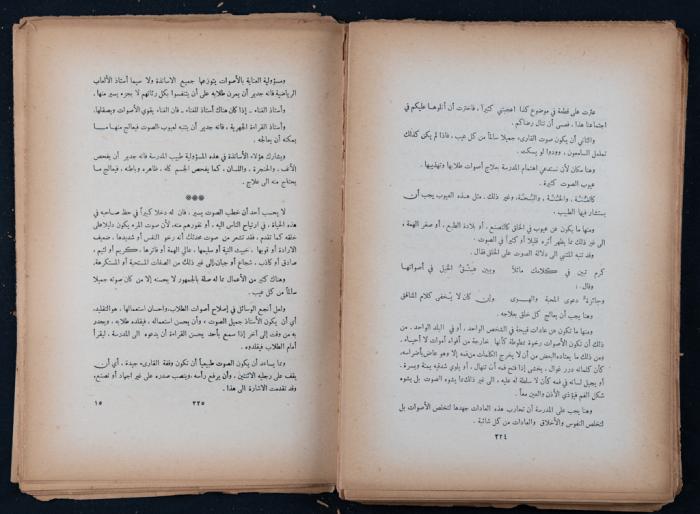 عثرت على قطعة في موضوع كذا اعجبتني كثيراً ، فاخترت أن أتلوها عليكم في
اجتماعنا هذا ، فعسى أن تنال رضاكم .
والثاني أن يكون صوت القارىء جميلا سالماً من كل عيب ، فاذا لم يكن كذلك
تململ السامعون ، وودوا لو يسكت .
وهنا مكان لأن نستدعي اهتمام المدرسة بعلاج أصوات طلابها وتهذيبها .
عيوب الصوت كثيرة .
كالتمتمة ، والخنة ، والبحة ، وغير ذلك . مثل هذه العيوب يجب أن
يستشار فيها الطبيب .
ومنها ما يكون عن عيوب في الخلق كالتصنع ، أو بلادة الطبع ، أو صغر الهمة ،
الى غير ذلك مما يظهر أثره قليلا أو كثيراً في الصوت .
وقد تنبه المتنبي الى دلالة الصوت على الخلق فقال .
كرم تبين في كلامك ماثلاً ويبين عتق الخيل في أصواتها
وقال :
وجائزة دعوى المحبة والهوى وان كان لا يخفى كلام المنافق
وهنا يجب أن يعالج كل خلق بعلاجه .
ومنها ما تكون عن عادات قبيحة في الشخص الواحد ، أو في البلد الواحد . من
ذلك أن تكون الأصوات رخوة ممطوطة كأنها خارجة من أفواه أموات لا أحياء .
ومن ذلك ما يعتاده البعض من أن لا يخرج الكلمات من فمه إلا وهو عاض بأضراسه،
كأن كلماته درر غوال ، يخشى إذا فتح فمه أن تنهال ، أو يلوي شدقيه يمنة ويسرة .
أو يجيل لسانه في فمه كأن لا سلطة له عليه ، الى غير ذلك مما يشوه الصوت بل يشوه
شكل الفم فيؤذي الأذن والعين معاً .
وهنا يجب على المدرسة أن تحارب هذه العادات جهدها لتخلص الأصوات بل
لتخلص النفوس والأخلاق والعادات من كل شائبة .
٢٢٤
ومسؤولية العناية بالأصوات يتوزعها جميع الاساتذة ولا سيما أستاذ الألعاب
الرياضية فانه جدير أن يمرن طلابه على أن يتنفسوا بكل رئاتهم لا بجزء يسير منها ،
وأستاذ الغناء . إذا كان هناك أستاذ للغناء . فان الغناء يقوي الأصوات ويصقلها،
وأستاذ القراءة الجهرية ، فانه جدير أن يتنبه لعيوب الصوت فيعالج منها مـا
يمكنه أن يعالجه .
ويشارك هؤلاء الأساتذة في هذه المسؤولية طبيب المدرسة فانه جدير أن يفحص
الأنف ، والحنجرة ، واللسان ، كما يفحص الجسم كله ، ظاهره وباطنه ، فيعالج ما
يحتاج منه الى علاج .
***
لا يحسب أحد أن خطب الصوت يسير ، فان له دخلا كبيراً في حظ صاحبه في
هذه الحياة ، في ارتياح الناس اليه ، أو نفورهم منه، لأن صوت المرء يكون دليلا على
خلقه كما تقدم ، فقد تشعر من صوت محدثك أنه رخو النفس أو شديدها . ضعيف
الارادة أو قويها . خبيث النية أو سليمها ، عالي الهمة أو فاترها ، كريم أو لئيم ،
صادق أو كاذب ، شجاع أو جبان، إلى غير ذلك من الصفات المستحبة أو المستكرهة.
وهناك كثير من الأعمال بما له صلة بالجمهور لا يحسنه إلا من كان صوته جميلا
سالماً من كل عيب .
ولعل أنجع الوسائل في إصلاح أصوات الطلاب، واحسان استعمالها ، هو التقليد،
أي أن يكون الأستاذ جميل الصوت ، وأن يحسن استعماله ، فيقلده طلابه ، ويجدر
به من وقت إلى آخر إذا سمع بأحد يحسن القراءة أن يدعوه الى المدرسة ، ليقرأ
أمام الطلاب فيقلدوه .
ومما يساعد أن يكون الصوت طبيعياً أن تكون وقفة القارىء جيدة ، أي أن
يقف على رجليه الاثنتين ، وأن يرفع رأسه ، وينصب صدره على غير اجهاد أو تصنع،
وقد تقدمت الاشارة الى هذا .
٢٢٥ ١٥